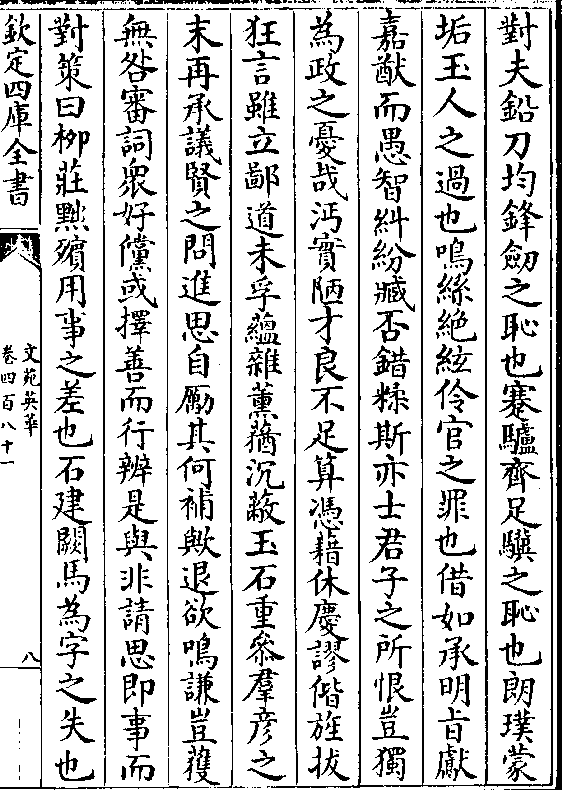 對夫鉛刀均鋒劒之恥也蹇驢齊足驥之恥也朗璞蒙
垢玉人之過也鳴絲絶絃伶官之罪也借如承明㫖獻
嘉猷而愚智糾紛臧否錯糅斯亦士君子之所恨豈獨
為政之憂哉沔實陋才良不足算憑藉休慶謬偕旌拔
狂言雖立鄙道未孚蘊雜薰蕕沉蔽玉石重叅羣彦之
末再承議賢之問進思自厲其何補歟退欲鳴謙豈䕶
無咎審詞衆好儻或擇善而行辨是與非請思即事而
對策曰柳莊黜殯用事之差也石建闕馬為字之失也
欽定四庫全書
文苑英華
卷四百八十一
八